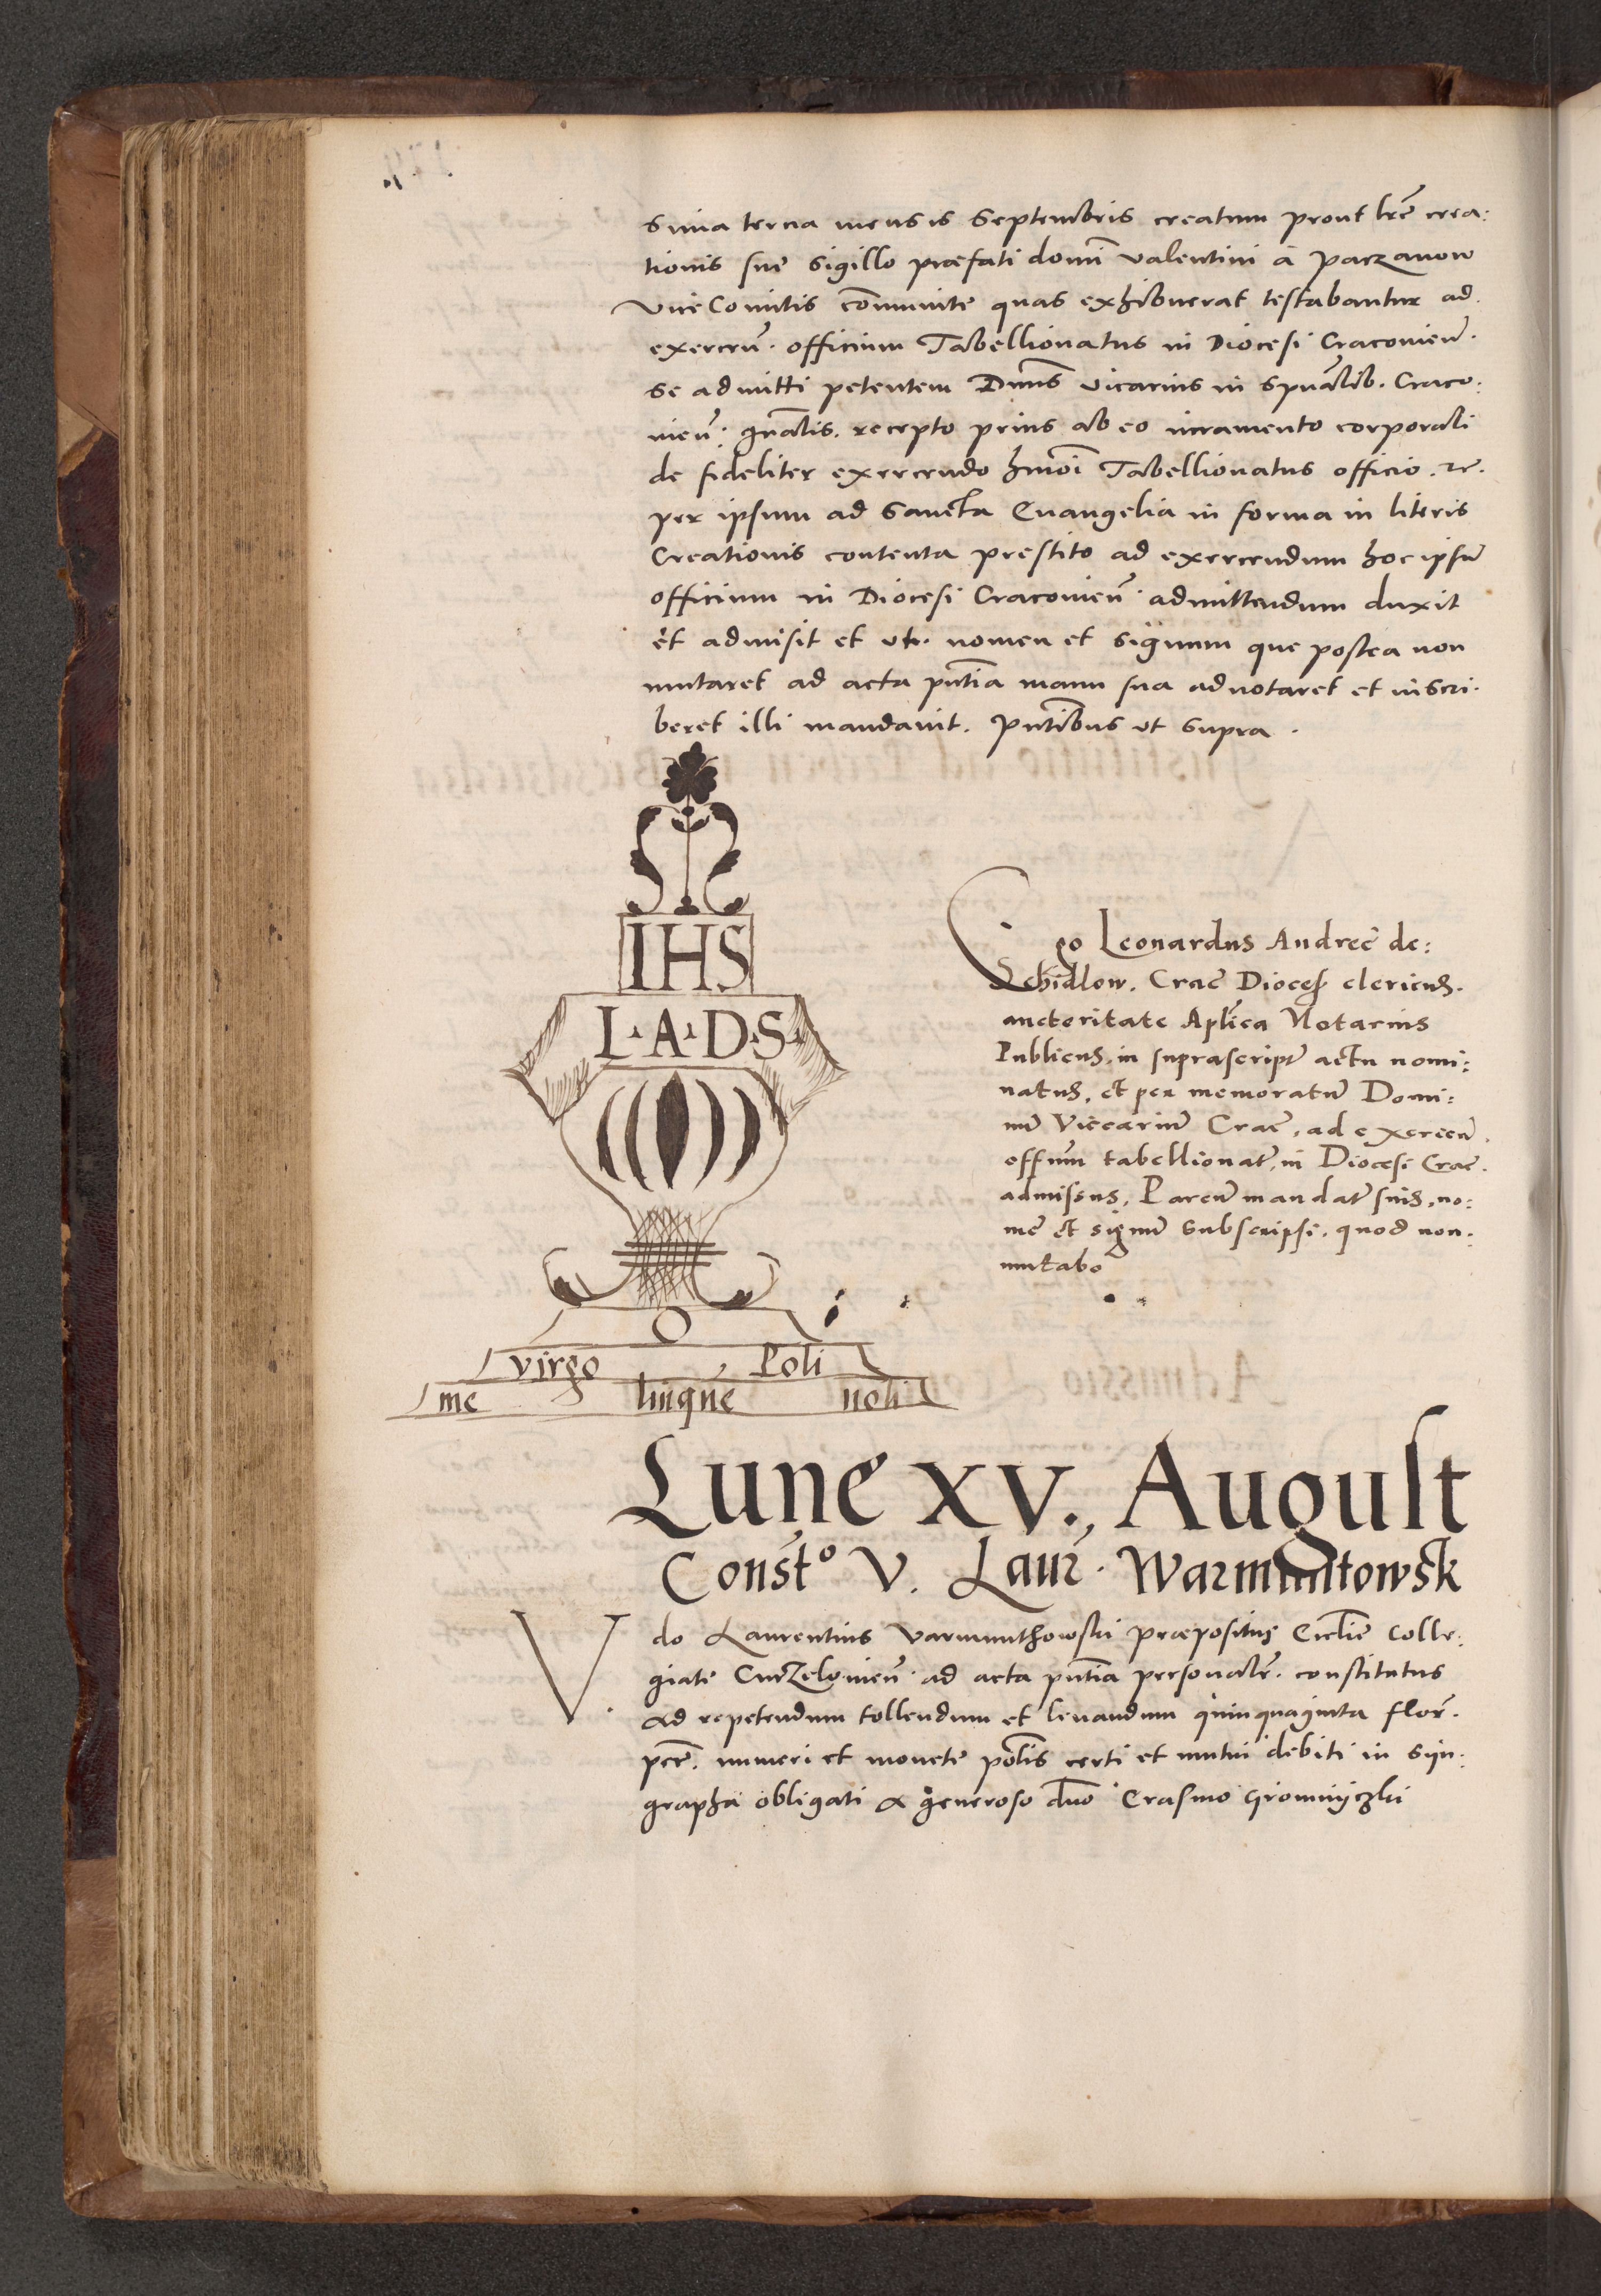 sima tercia mensis Septembris creatum prout lr̃e crea:
tionis sue sigillo præfati domĩ Valentini a Paczanow
ViceComitis cõmunite quas exhibuerat testabantur ad
exercen̄. officium Tabellionatus in Diocesi Cracovien̄.
se admitti petentem Dnūs vicarius in spūalib. Craco:
vien̄. gn̄alis. recepto prius ab eo iuramento corporali
de fideliter exercendo hmōi Tabellionatus officio. etc.
per ipsum ad Sancta Euangelia in forma in literis
Creationis contenta prestito ad exercendum hoc ipsū
officium in Diocesi Cracovien̄. admittendum duxit
et admisit et ut. nomen et signum que postea non
mutaret ad acta pn̄tia manu sua adnotaret et inscri.
beret illi mandavit. Pn̄tibus ut supra.
IHS
L·A·D·S·
Ego Leonardus Andreę de:
Schidlow. Crac̄ Dioces̄ clericus.
auctoritate Aplica Notarius
Publicus, in suprascript̄ actu nomi:
natus, et per memoratū Domi:
nū Vicariū Crac̄, ad exercen̄.
offium tabellionat̄, in Diocesi Crac̄.
admissus, Paren̄ mandat̄ suis, no:
mē et signū subscripsi. quod non.
mutabo
O
virgo , Poli
me linque noli
Lune XV. August
Constᵒ V. Laur̄. Warmuntowsk
V
do Laurentius Varmunthowski præpositus Ecclie Colle:
giate Curzelovien̄. ad acta pn̄tia personalr̄. constitutus
ad repetendum tollendum et levandum quinquaginta flor̄.
pec̄. numeri et monete polīs certi et mutui debiti in syn:
grapha obligati a generoso dno Erasmo Gromnyczki